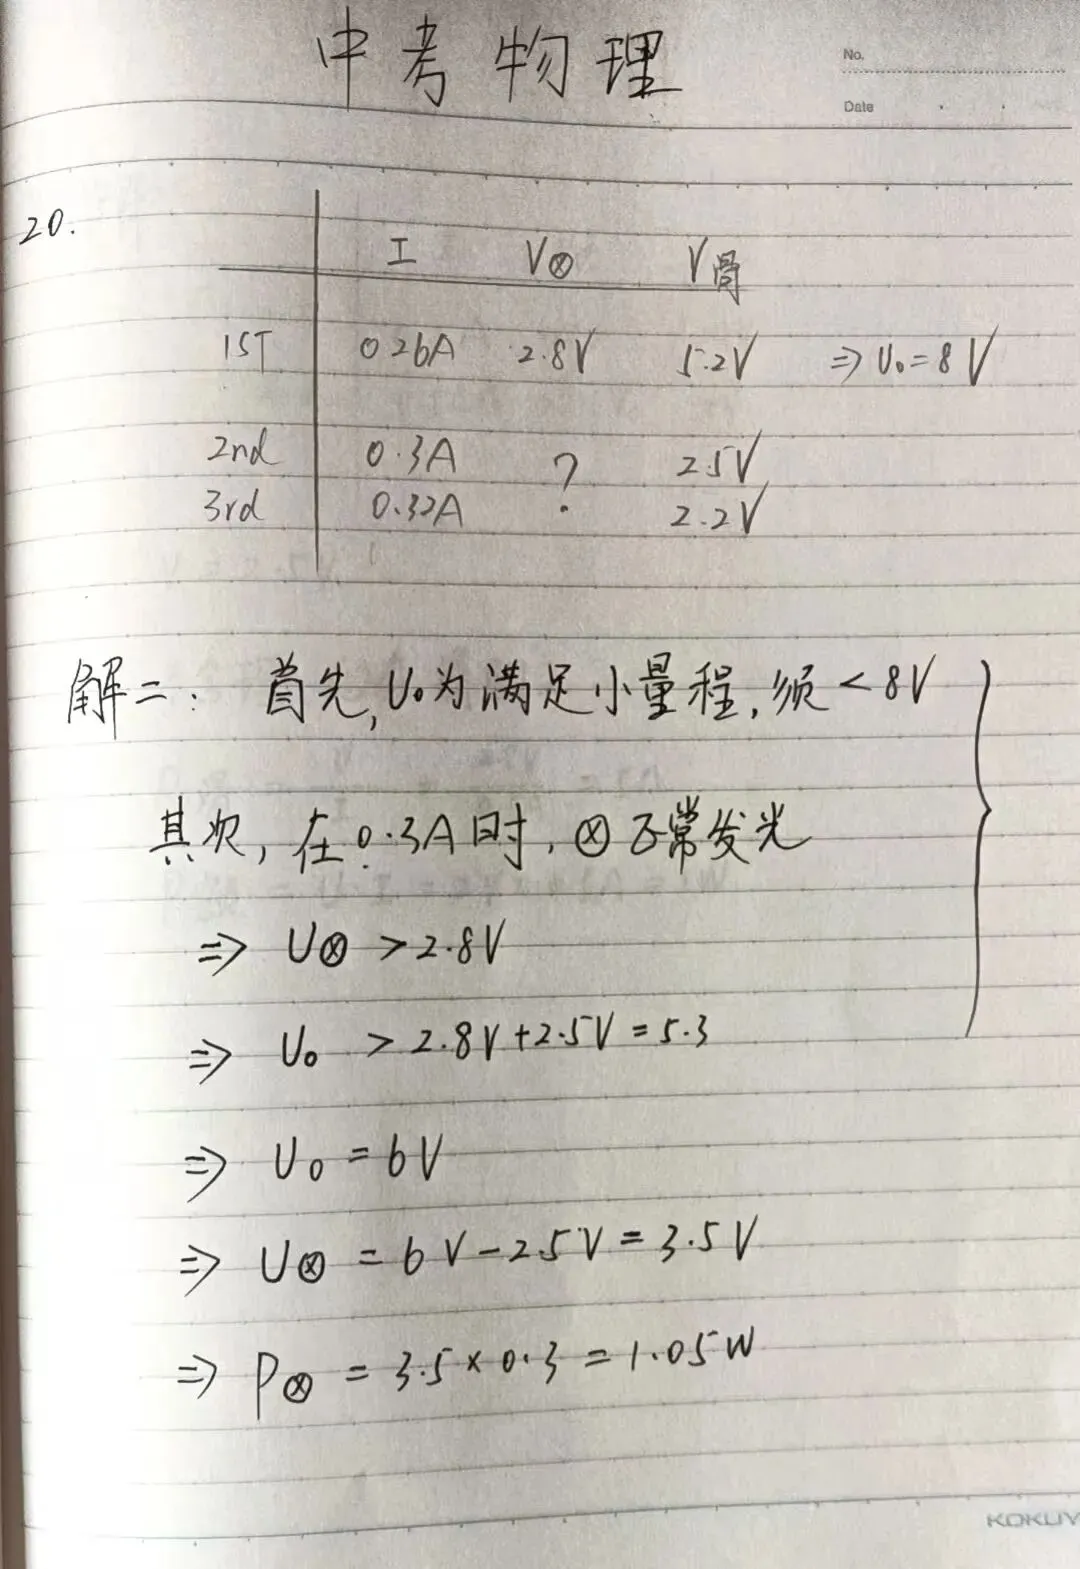 中考物理
No.
Date
20.
I V⊗ V滑
1ST 0.26A 2.8V 5.2V ⇒ U₀=8V
2nd 0.3A ? 2.5V
3rd 0.32A 2.2V
解二: 首先, U₀为满足小量程, 须<8V
其次, 在0.3A时, ⊗正常发光
⇒ U⊗ >2.8V
⇒ U₀ >2.8V+2.5V=5.3
⇒ U₀ =6V
⇒ U⊗ =6V-2.5V=3.5V
⇒ P⊗ =3.5×0.3=1.05W
KOKUY